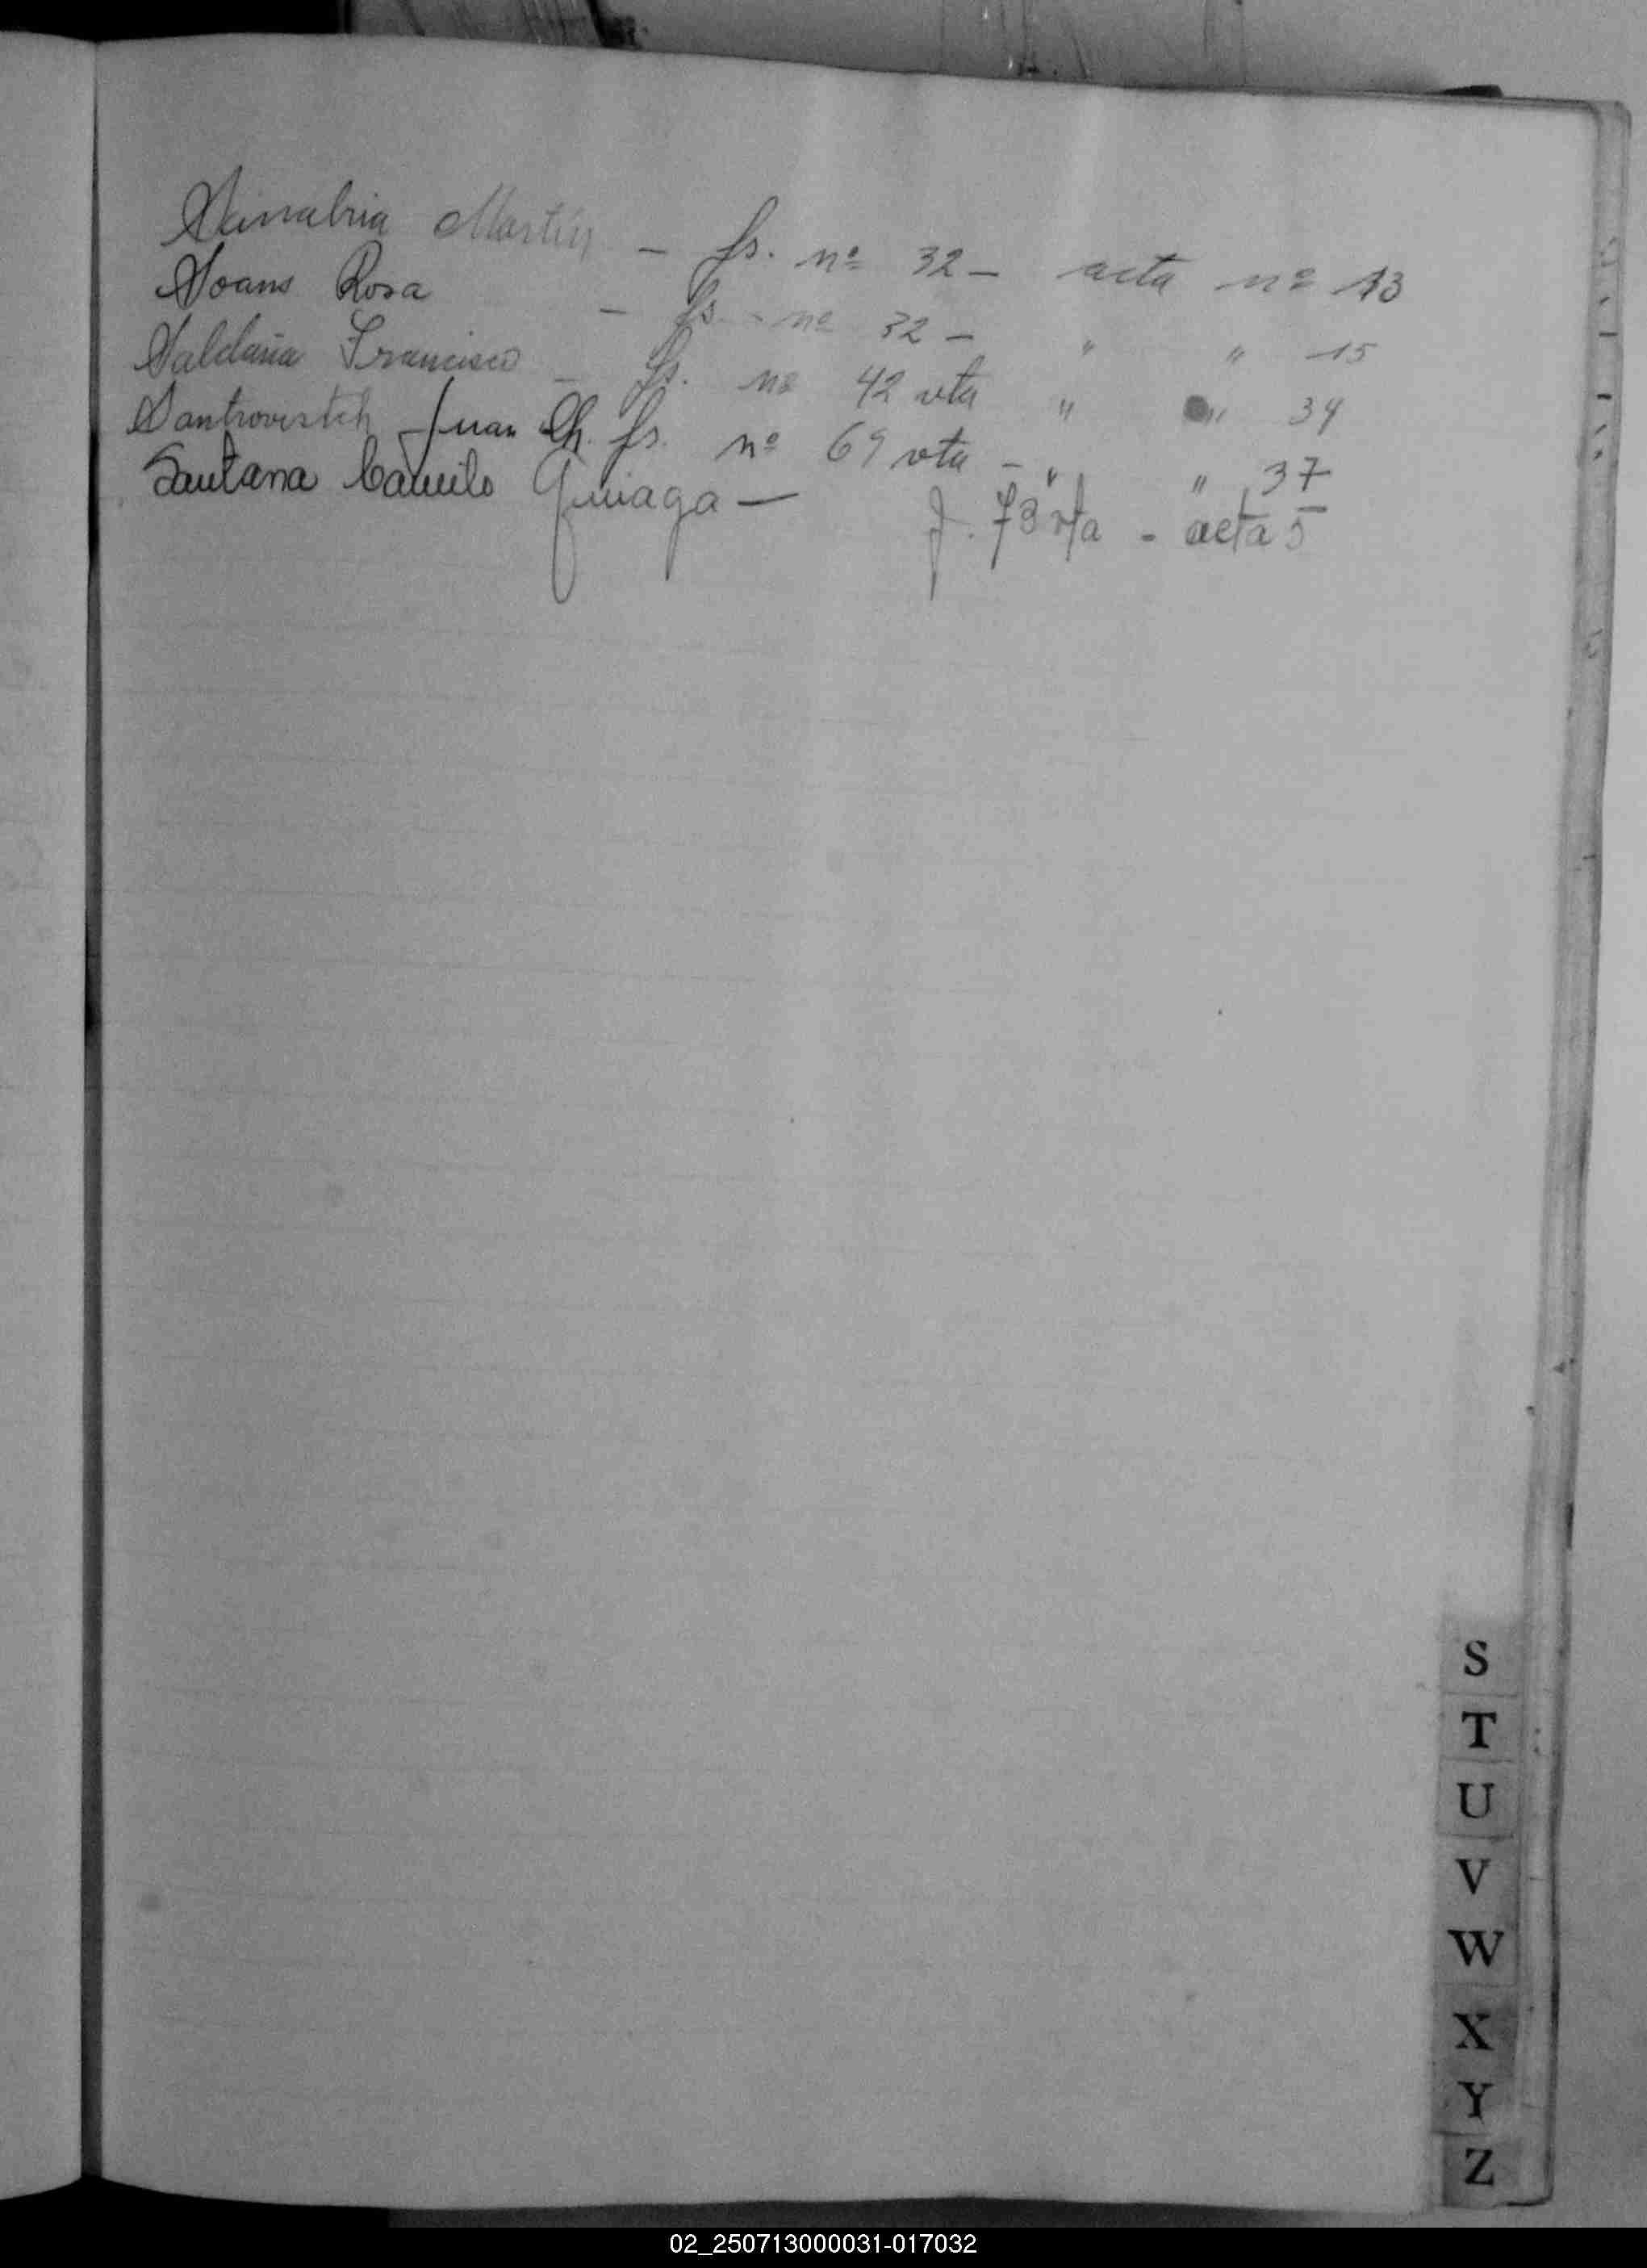 Sanabria Martín - fs. nº 32 - acta nº 13
Soans Rosa - fs. nº 32 - " " 15
Saldaña Francisco - fs. nº 42 vta " " 34
Santrovistch Juan Ch. fs. nº 69 vta - " " 37
Santana Camilo Quiaga - f. 73 vta - acta 5
S
T
U
V
W
X
Y
Z
02_250713000031-017032